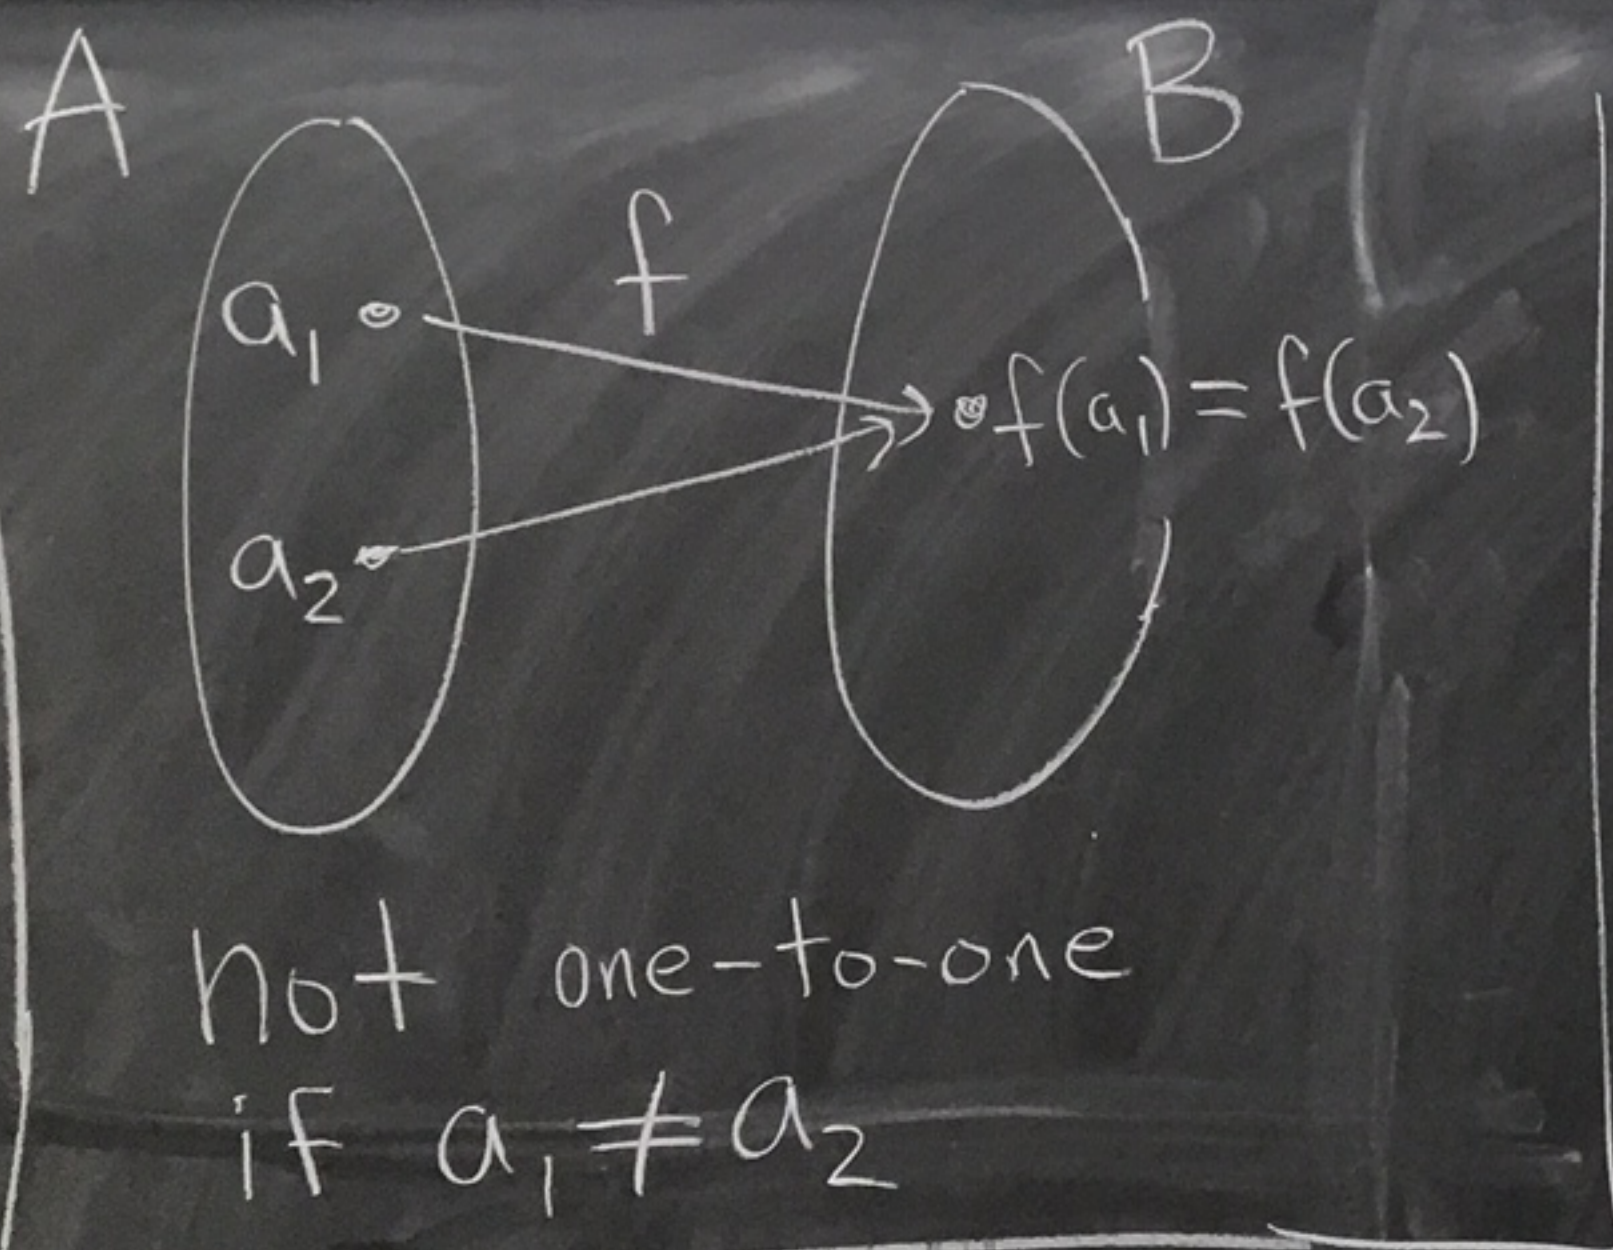 A
B
f
a₁
f(a₁) = f(a₂)
a₂
not one-to-one
if a₁ ≠ a₂